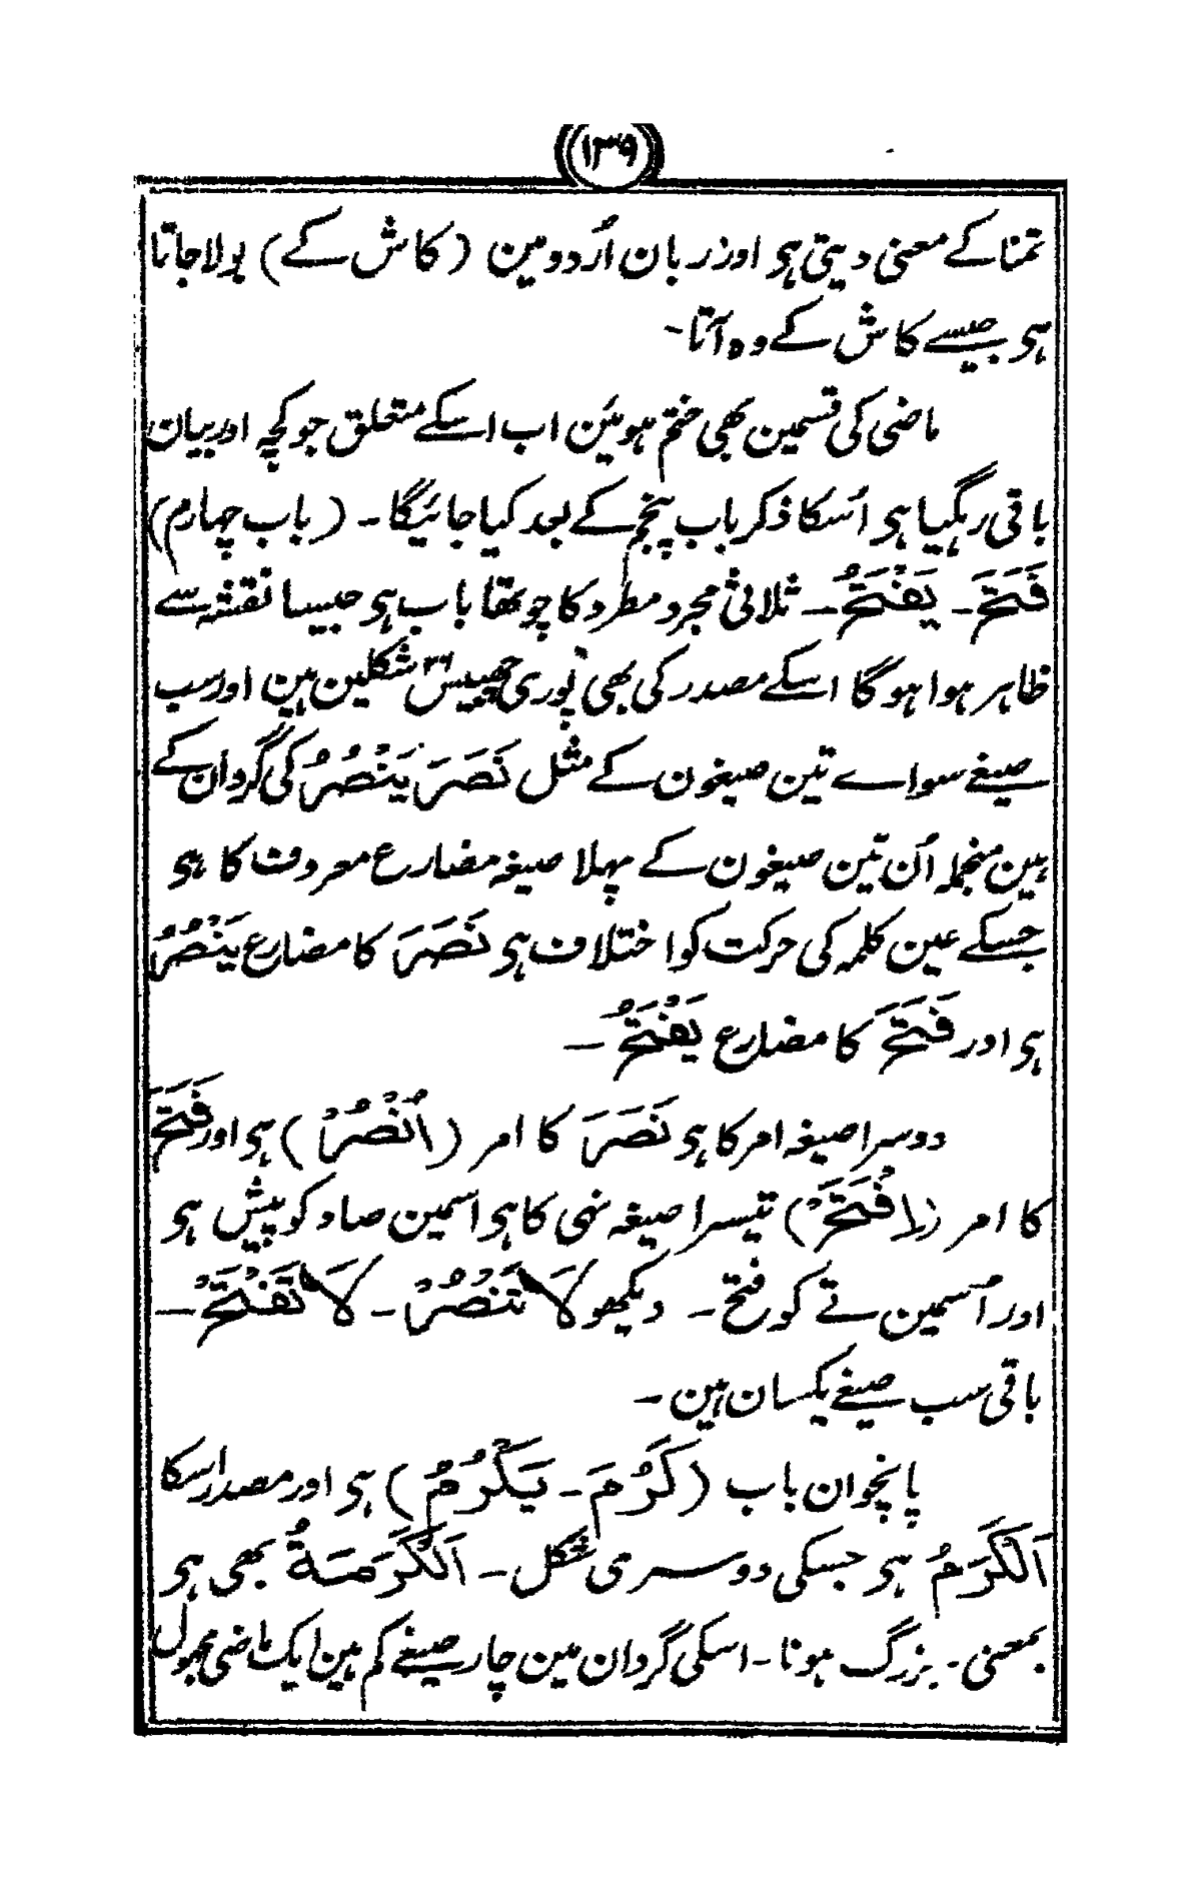 ۱۳۹
تمنا کے معنی دیتی ہی اور زبان اُردو مین (کاش کے) بولا جاتا
ہی جیسے کاش کے وہ آتا۔
ماضی کی قسمین بھی ختم ہوئین اب اسکے متعلق جو کچہ اور بیان
باقی رہگیا ہی اُسکا ذکر باب پنجم کے بعد کیا جائیگا۔ (باب چہارم)
فَتَحَ۔ یَفْتَحُ۔ ثلاثی مجرد مطرد کا چوتھا باب ہی جیسا نقشہ سے
ظاہر ہوا ہوگا اسکے مصدر کی بھی پوری چھبیس۲۶ شکلین ہین اور سب
صیغے سواے تین صیغون کے مثل نَصَرَ یَنْصُرُ کی گردان کے
ہین منجملہ اُن تین صیغون کے پہلا صیغہ مضارع معروف کا ہی
جسکے عین کلمہ کی حرکت کو اختلاف ہی نَصَرَ کا مضارع یَنْصُرُ
ہی اور فَتَحَ کا مضارع یَفْتَحُ۔
دوسرا صیغہ امر کا ہی نَصَرَ کا امر (اُنْصُرْ) ہی اور فَتَحَ
کا امر (اِفْتَحْ) تیسرا صیغہ نہی کا ہی اسمین صاد کو پیش ہی
اور اُسمین تے کو فتح۔ دیکھو لَا تَنْصُرْ۔ لَا تَفْتَحْ۔
باقی سب صیغے یکسان ہین۔
پانچوان باب (کَرُمَ۔ یَکْرُمُ) ہی اور مصدر اسکا
اَلْکَرَمُ ہی جسکی دوسری شکل۔ اَلْکَرَمَةُ بھی ہی
بمعنی۔ بزرگ ہونا۔ اسکی گردان مین چار صیغے کم ہین ایک ماضی مجہول